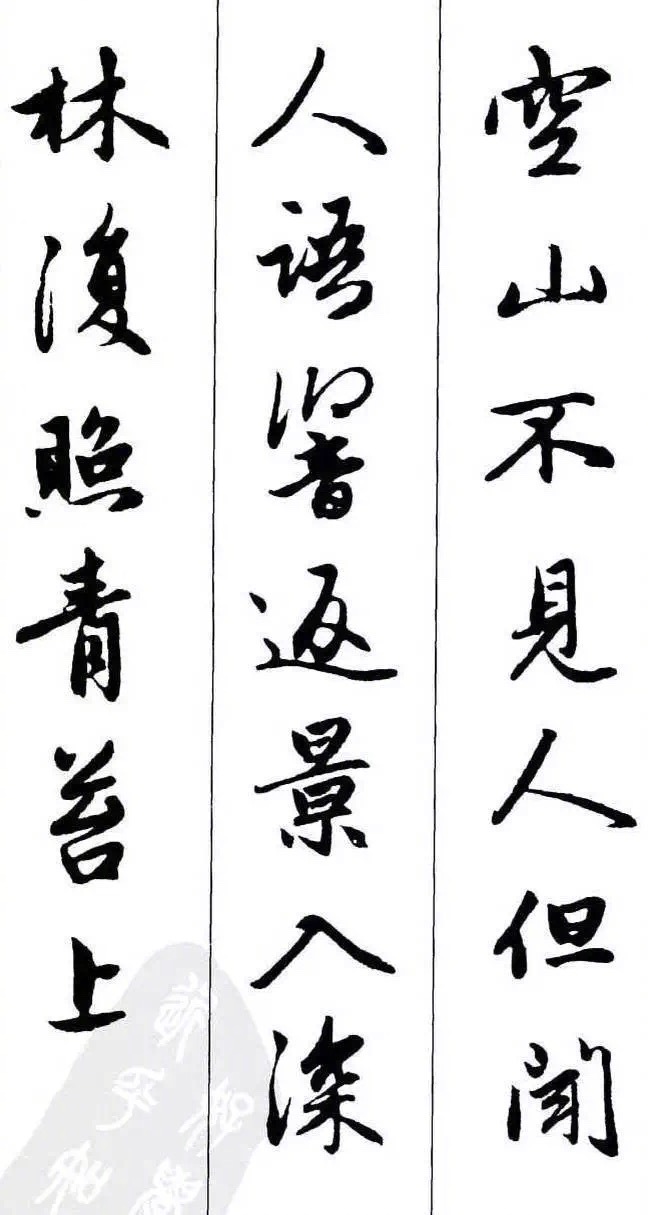 空山不見人但聞
人語響返景入深
林復照青苔上